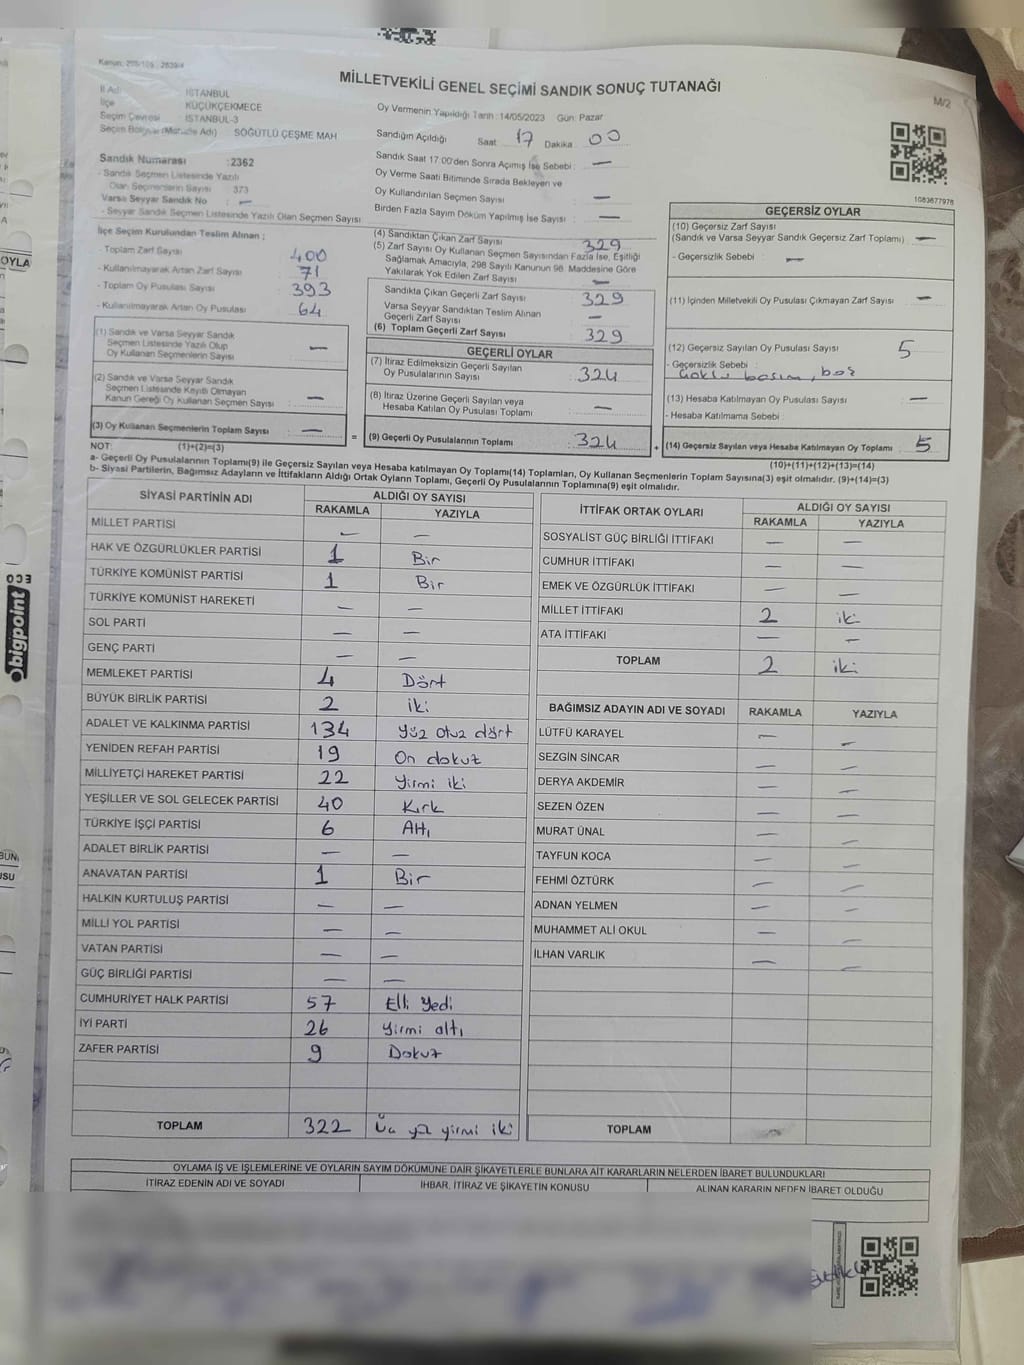 Kanun: 298/105, 2839/4
MİLLETVEKİLİ GENEL SEÇİMİ SANDIK SONUÇ TUTANAĞI
M/2
İl Adı : İSTANBUL
İlçe : KÜÇÜKÇEKMECE
Seçim Çevresi : İSTANBUL-3
Seçim Bölgesi (Mahalle Adı) : SÖĞÜTLÜ ÇEŞME MAH
Sandık Numarası :2362
- Sandık Seçmen Listesinde Yazılı
Olan Seçmenlerin Sayısı : 373
Varsa Seyyar Sandık No : —
- Seyyar Sandık Seçmen Listesinde Yazılı Olan Seçmen Sayısı
Oy Vermenin Yapıldığı Tarih : 14/05/2023 Gün: Pazar
Sandığın Açıldığı Saat 17 Dakika 00
Sandık Saat 17:00'den Sonra Açılmış İse Sebebi : —
Oy Verme Saati Bitiminde Sırada Bekleyen ve
Oy Kullandırılan Seçmen Sayısı : —
Birden Fazla Sayım Döküm Yapılmış İse Sayısı : —
1083677976
İlçe Seçim Kurulundan Teslim Alınan ;
- Toplam Zarf Sayısı : 400
- Kullanılmayarak Artan Zarf Sayısı : 71
- Toplam Oy Pusulası Sayısı : 393
- Kullanılmayarak Artan Oy Pusulası : 64
(1) Sandık ve Varsa Seyyar Sandık
Seçmen Listesinde Yazılı Olup
Oy Kullanan Seçmenlerin Sayısı : —
(2) Sandık ve Varsa Seyyar Sandık
Seçmen Listesinde Kayıtlı Olmayan
Kanun Gereği Oy Kullanan Seçmen Sayısı : —
(3) Oy Kullanan Seçmenlerin Toplam Sayısı : —
(4) Sandıktan Çıkan Zarf Sayısı : 329
(5) Zarf Sayısı Oy Kullanan Seçmen Sayısından Fazla İse, Eşitliği
Sağlamak Amacıyla, 298 Sayılı Kanunun 98. Maddesine Göre
Yakılarak Yok Edilen Zarf Sayısı : —
Sandıkta Çıkan Geçerli Zarf Sayısı : 329
Varsa Seyyar Sandıktan Teslim Alınan
Geçerli Zarf Sayısı : —
(6) Toplam Geçerli Zarf Sayısı : 329
GEÇERLİ OYLAR
(7) İtiraz Edilmeksizin Geçerli Sayılan
Oy Pusulalarının Sayısı : 324
(8) İtiraz Üzerine Geçerli Sayılan veya
Hesaba Katılan Oy Pusulası Toplamı : —
= (9) Geçerli Oy Pusulalarının Toplamı : 324 +
GEÇERSİZ OYLAR
(10) Geçersiz Zarf Sayısı
(Sandık ve Varsa Seyyar Sandık Geçersiz Zarf Toplamı) : —
- Geçersizlik Sebebi : —
(11) İçinden Milletvekili Oy Pusulası Çıkmayan Zarf Sayısı : —
(12) Geçersiz Sayılan Oy Pusulası Sayısı : 5
- Geçersizlik Sebebi :
basım, boş
(13) Hesaba Katılmayan Oy Pusulası Sayısı : —
- Hesaba Katılmama Sebebi :
(14) Geçersiz Sayılan veya Hesaba Katılmayan Oy Toplamı : 5
NOT: (1)+(2)=(3)
(10)+(11)+(12)+(13)=(14)
a- Geçerli Oy Pusulalarının Toplamı(9) ile Geçersiz Sayılan veya Hesaba katılmayan Oy Toplamı(14) Toplamları, Oy Kullanan Seçmenlerin Toplam Sayısına(3) eşit olmalıdır. (9)+(14)=(3)
b- Siyasi Partilerin, Bağımsız Adayların ve İttifakların Aldığı Ortak Oyların Toplamı, Geçerli Oy Pusulalarının Toplamına(9) eşit olmalıdır.
SİYASİ PARTİNİN ADI ALDIĞI OY SAYISI
RAKAMLA YAZIYLA
MİLLET PARTİSİ — —
HAK VE ÖZGÜRLÜKLER PARTİSİ 1 Bir
TÜRKİYE KOMÜNİST PARTİSİ 1 Bir
TÜRKİYE KOMÜNİST HAREKETİ — —
SOL PARTİ — —
GENÇ PARTİ — —
MEMLEKET PARTİSİ 4 Dört
BÜYÜK BİRLİK PARTİSİ 2 iki
ADALET VE KALKINMA PARTİSİ 134 Yüz otuz dört
YENİDEN REFAH PARTİSİ 19 On dokuz
MİLLİYETÇİ HAREKET PARTİSİ 22 Yirmi iki
YEŞİLLER VE SOL GELECEK PARTİSİ 40 Kırk
TÜRKİYE İŞÇİ PARTİSİ 6 Altı
ADALET BİRLİK PARTİSİ — —
ANAVATAN PARTİSİ 1 Bir
HALKIN KURTULUŞ PARTİSİ — —
MİLLİ YOL PARTİSİ — —
VATAN PARTİSİ — —
GÜÇ BİRLİĞİ PARTİSİ — —
CUMHURİYET HALK PARTİSİ 57 Elli Yedi
İYİ PARTİ 26 Yirmi altı
ZAFER PARTİSİ 9 Dokuz
TOPLAM 322 Üç yüz yirmi iki
İTTİFAK ORTAK OYLARI ALDIĞI OY SAYISI
RAKAMLA YAZIYLA
SOSYALİST GÜÇ BİRLİĞİ İTTİFAKI — —
CUMHUR İTTİFAKI — —
EMEK VE ÖZGÜRLÜK İTTİFAKI — —
MİLLET İTTİFAKI 2 iki
ATA İTTİFAKI — —
TOPLAM 2 iki
BAĞIMSIZ ADAYIN ADI VE SOYADI RAKAMLA YAZIYLA
LÜTFÜ KARAYEL — —
SEZGİN SİNCAR — —
DERYA AKDEMİR — —
SEZEN ÖZEN — —
MURAT ÜNAL — —
TAYFUN KOCA — —
FEHMİ ÖZTÜRK — —
ADNAN YELMEN — —
MUHAMMET ALİ OKUL — —
İLHAN VARLIK — —
TOPLAM
OYLAMA İŞ VE İŞLEMLERİNE VE OYLARIN SAYIM DÖKÜMÜNE DAİR ŞİKAYETLERLE BUNLARA AİT KARARLARIN NELERDEN İBARET BULUNDUKLARI
İTİRAZ EDENİN ADI VE SOYADI İHBAR, İTİRAZ VE ŞİKAYETİN KONUSU ALINAN KARARIN NEDEN İBARET OLDUĞU
OYLA
bigpoint